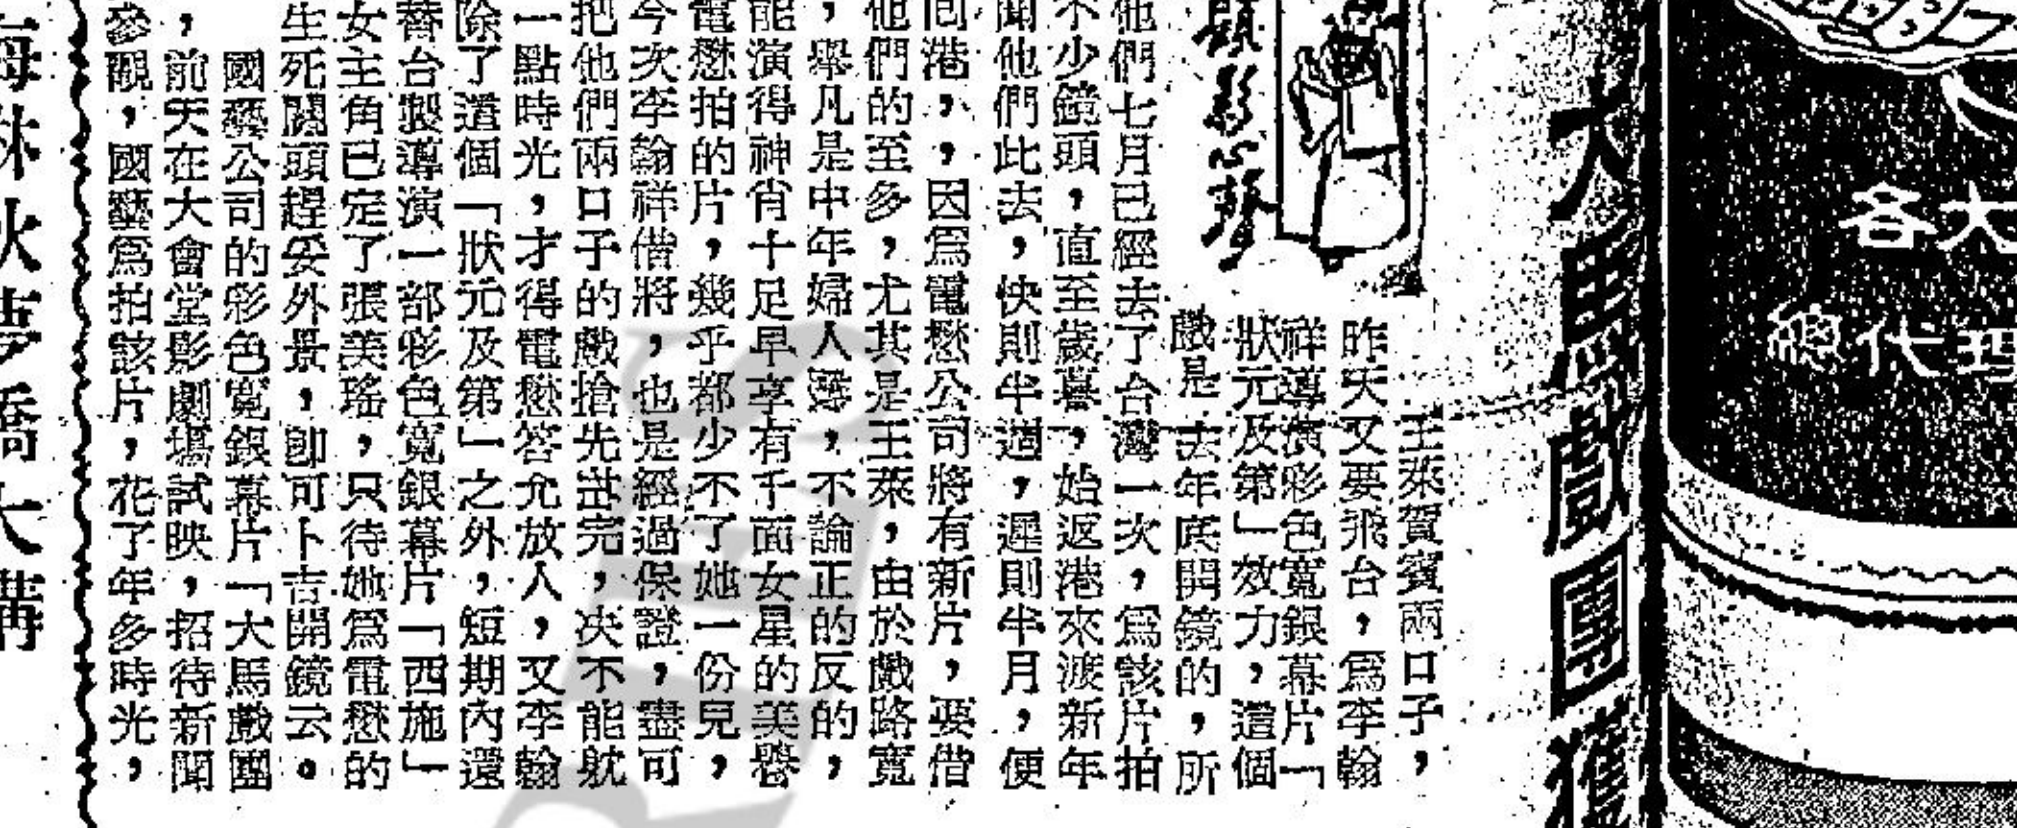 各大
總代理
大馬戲團獲
顧影心聲
王萊賀賓兩口子，
昨天又要飛台，爲李翰
祥導演彩色寬銀幕片「
狀元及第」效力，這個
戲是去年底開鏡的，所
他們七月已經去了台灣一次，爲該片拍
不少鏡頭，直至歲暮，始返港來渡新年
聞他們此去，快則半週，遲則半月，便
回港，，因爲電懋公司將有新片，要借
他們的至多，尤其是王萊，由於戲路寬
，舉凡是中年婦人等，不論正的反的，
能演得神肖十足早享有千面女星的美譽
電懋拍的片，幾乎都少不了她一份兒，
今次李翰祥借將，也是經過保證，盡可
把他們兩口子的戲搶先拍完，決不能躭
一點時光，才得電懋答允放人，又李翰
除了這個「狀元及第」之外，短期內還
替台製導演一部彩色寬銀幕片「西施」
女主角已定了張美瑤，只待她爲電懋的
生死關頭趕妥外景，即可卜吉開鏡云。
國藝公司的彩色寬銀幕片「大馬戲團
，前天在大會堂影劇場試映，招待新聞
參觀，國藝爲拍該片，花了年多時光，